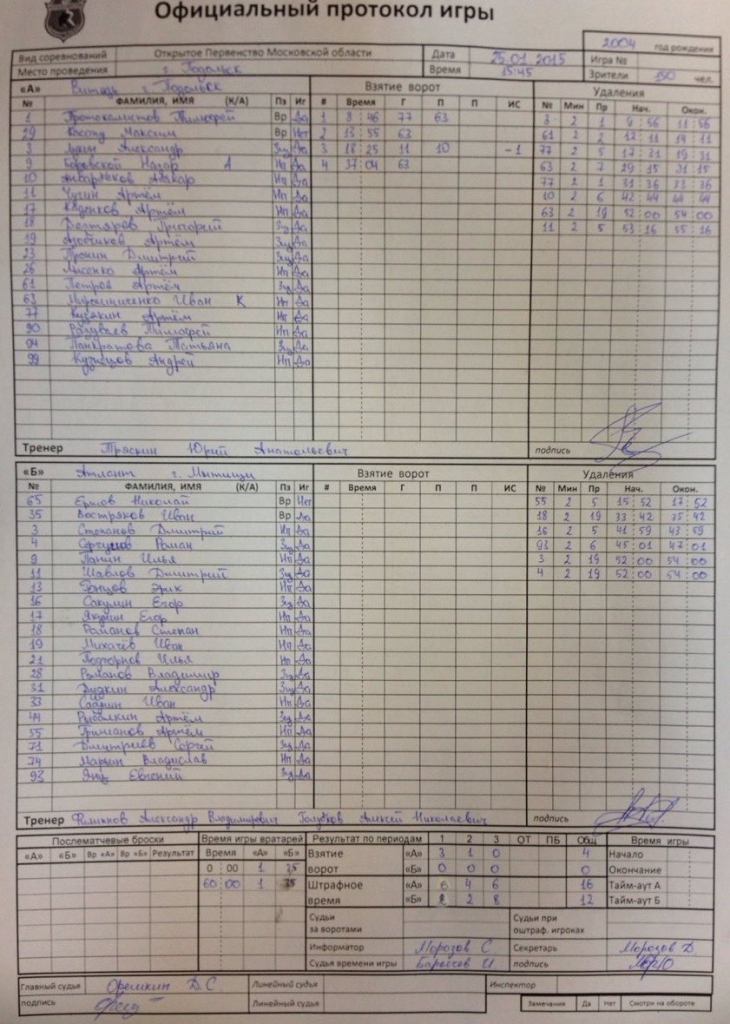 Официальный протокол игры
2004 год рождения
Вид соревнований Открытое Первенство Московской области Дата 25.01.2015 Игра №
Место проведения г. Подольск Время 15:45 Зрители 150 чел.
«А» Витязь г. Подольск Взятие ворот Удаления
№ ФАМИЛИЯ, ИМЯ (К/А) Пз Иг # Время Г П П ИС № Мин Пр Нач. Окон.
1 Вр Да 1 8 46 77 63 3 2 1 9 56 11 56
29 Максим Вр Нет 2 13 55 63 61 2 2 12 11 14 11
3 Александр Зщ Да 3 18 25 11 10 -1 77 2 5 17 31 19 31
9 Боровской Назар А Нп Да 4 37 04 63 63 2 7 29 15 31 15
10 Нп Да 77 2 1 31 36 33 36
11 Чугин Артём Нп Да 10 2 6 42 44 44 44
17 Артём Нп Да 63 2 19 52 00 54 00
18 Григорий Зщ Да 11 2 5 53 16 55 16
19 Артём Зщ Да
23 Пронин Дмитрий Зщ Да
26 Лисенко Артём Нп Да
61 Петров Артём Зщ Да
63 Мирошниченко Иван К Нп Да
77 Артём Нп Да
90 Тимофей Нп Да
94 Панкратова Татьяна Зщ Да
99 Кузнецов Андрей Нп Да
Тренер Тряскин Юрий Анатольевич подпись
«Б» Атлант г. Мытищи Взятие ворот Удаления
№ ФАМИЛИЯ, ИМЯ (К/А) Пз Иг # Время Г П П ИС № Мин Пр Нач. Окон.
65 Ершов Николай Вр Нет 55 2 5 15 52 17 52
35 Востряков Иван Вр Да 18 2 19 33 42 35 42
3 Степанов Дмитрий Нп Да 16 2 5 41 59 43 59
4 Сергунов Роман Зщ Да 93 2 6 45 01 47 01
9 Панин Илья Нп Да 3 2 19 52 00 54 00
11 Шавлов Дмитрий Зщ Да 4 2 19 52 00 54 00
13 Эрик Нп Да
16 Сакулин Егор Зщ Да
17 Якунин Егор Нп Да
18 Романов Степан Нп Да
19 Михачёв Иван Нп Да
21 Подгорнов Илья Нп Да
28 Романов Владимир Зщ Да
31 Дудкин Александр Зщ Да
33 Иван Нп Да
44 Рыбалкин Артём Зщ Да
55 Артём Нп Да
71 Дмитриев Сергей Зщ Да
74 Марьин Владислав Нп Да
93 Янц Евгений Зщ Да
Тренер Филиппов Александр Владимирович Голубков Алексей Николаевич подпись
Послематчевые броски Время игры вратарей Результат по периодам 1 2 3 ОТ ПБ Общ Время игры
«А» «Б» Вр «А» Вр «Б» Результат Время «А» «Б» Взятие «А» 3 1 0 4 Начало
0 00 1 35 ворот «Б» 0 0 0 0 Окончание
60 00 1 35 Штрафное «А» 6 4 6 16 Тайм-аут А
время «Б» 2 2 8 12 Тайм-аут Б
Судьи за воротами Судьи при оштраф. игроках
Информатор Морозов С Секретарь Морозов Д.
Судья времени игры И. подпись
Главный судья Орешкин Д.С. Линейный судья Инспектор
подпись Линейный судья Замечания Да Нет Смотри на обороте